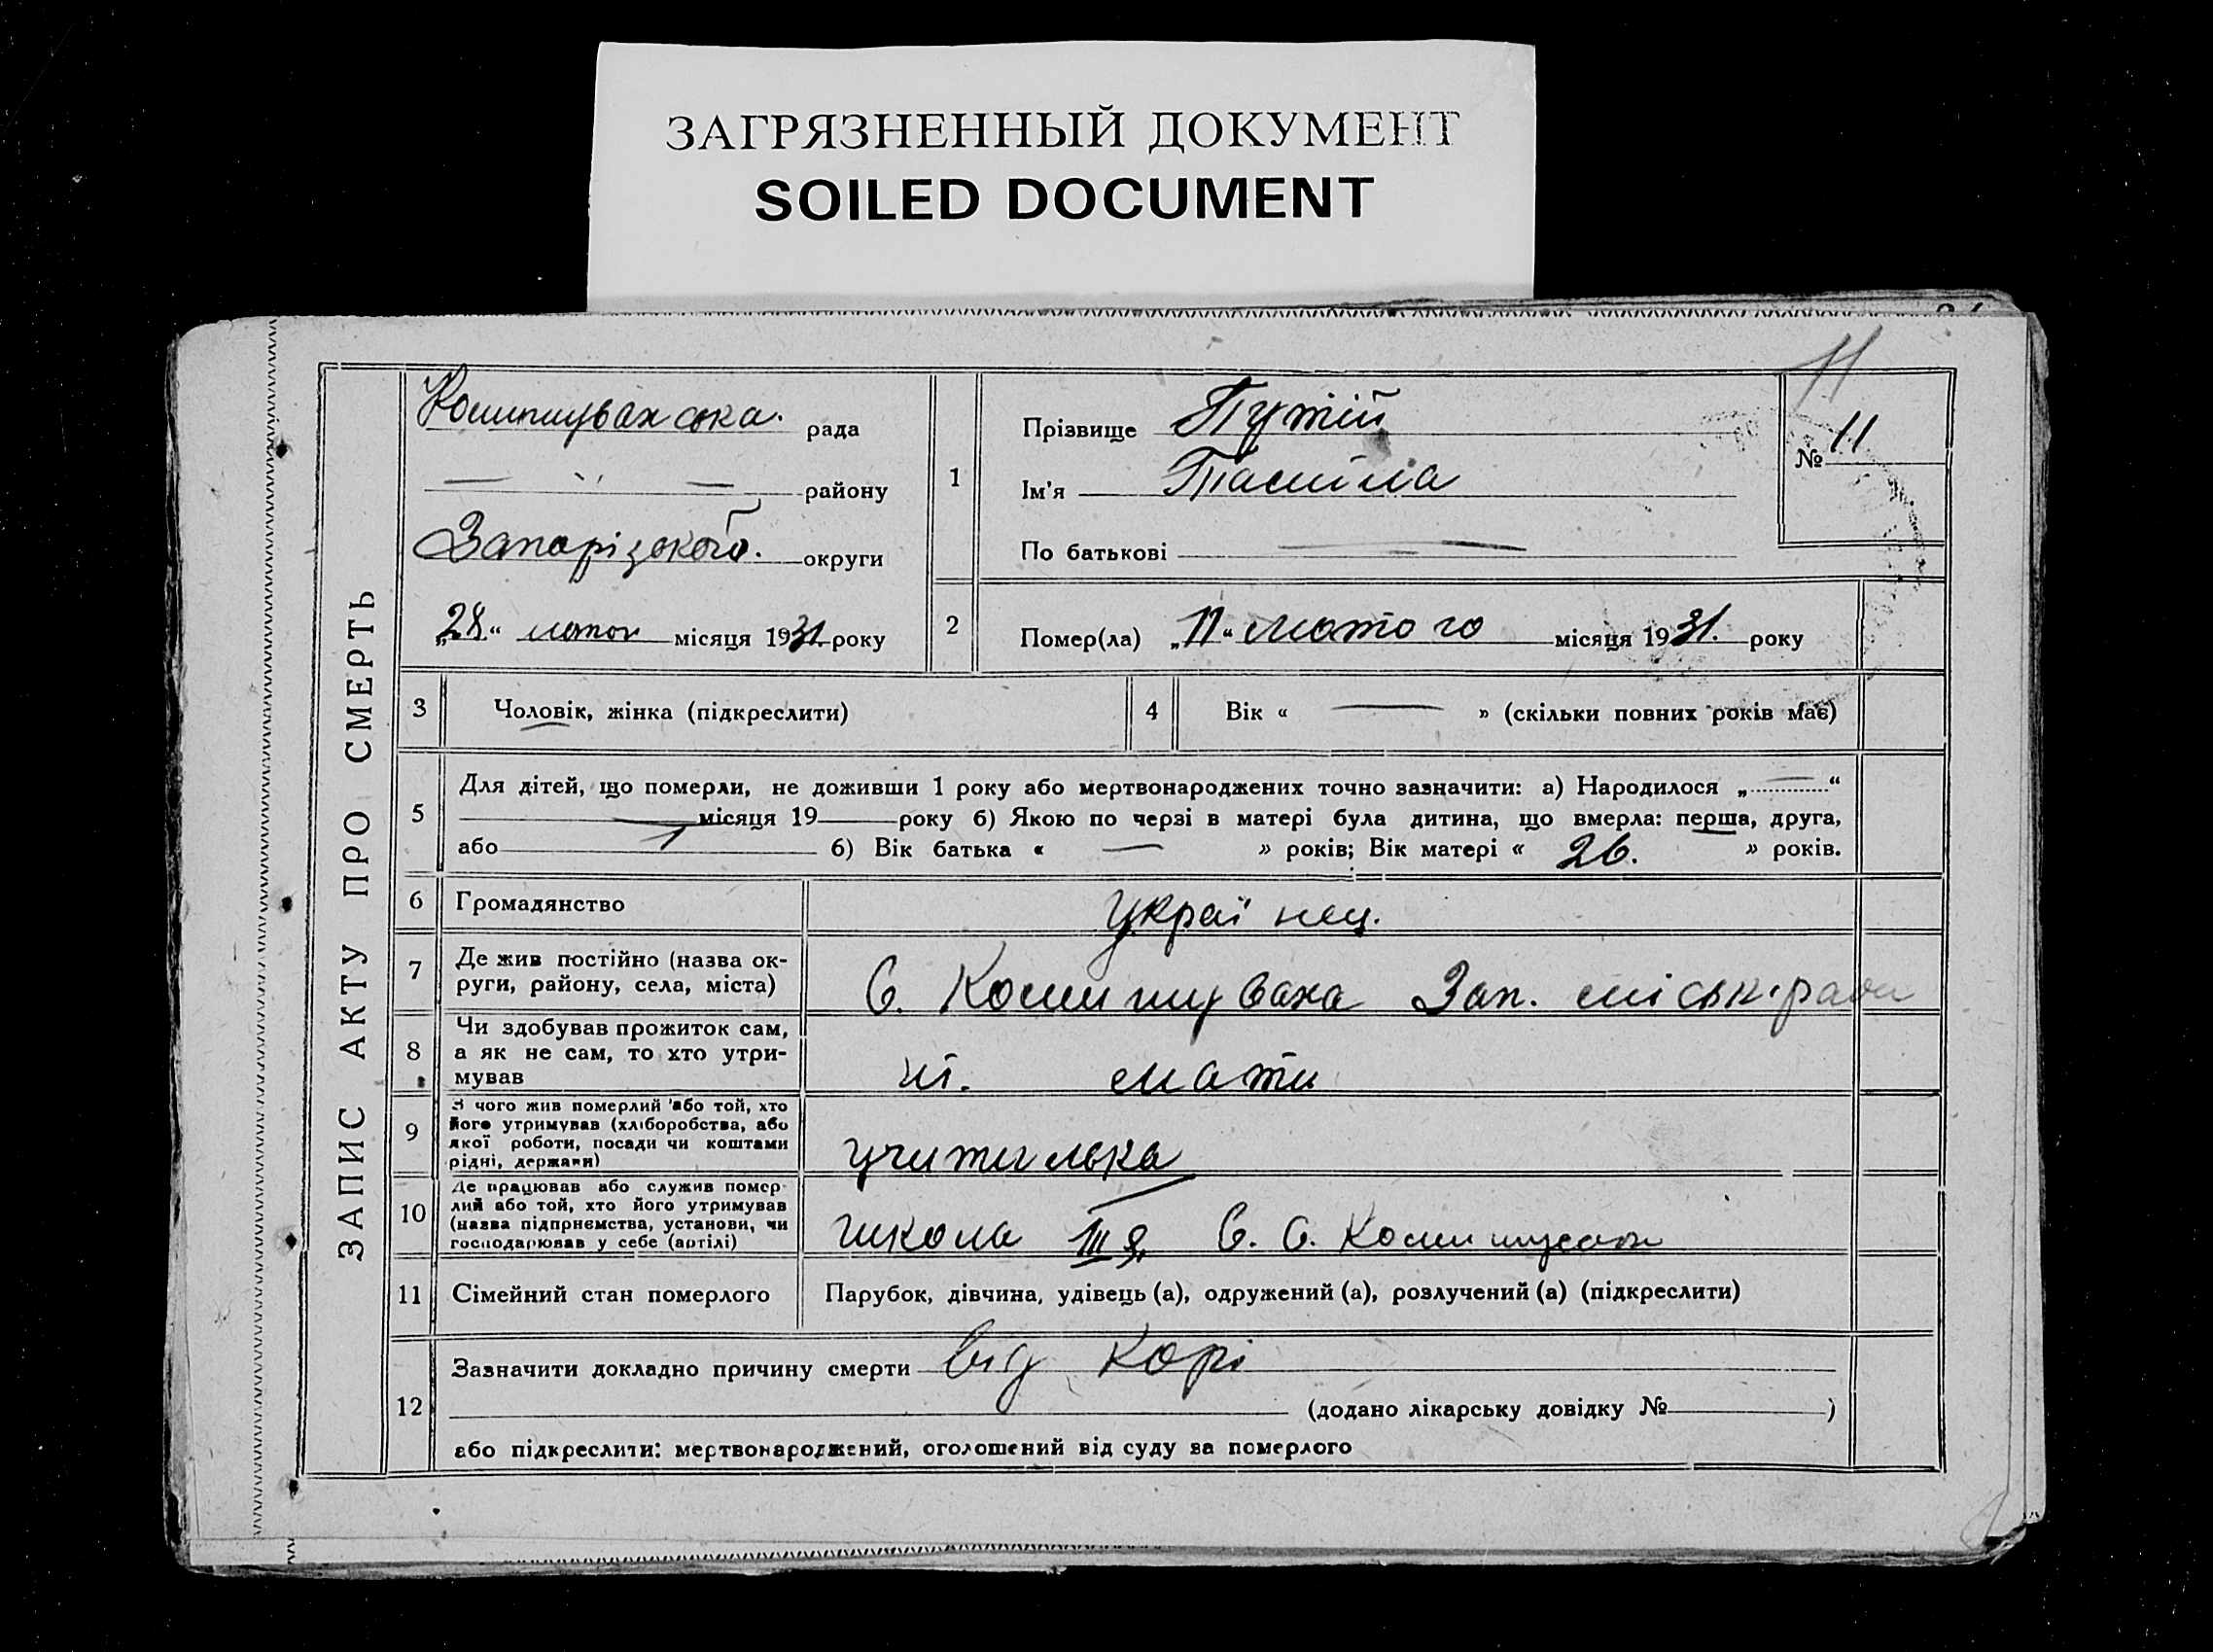 ЗАГРЯЗНЕННЫЙ ДОКУМЕНТ
SOILED DOCUMENT
ЗАПИС АКТУ ПРО СМЕРТЬ
11
Комишувахська. рада
— " — району
Запорізького. округи
„28“ лютого місяця 1931. року
1
Прізвище Путій
Ім'я
По батькові —
№ 11
2
Помер(ла) „11“ лютого місяця 1931. року
3 Чоловік, жінка (підкреслити)
4 Вік « — » (скільки повних років має)
5 Для дітей, що померли, не доживши 1 року або мертвонароджених точно зазначити: а) Народилося „ — “
— місяця 19 року б) Якою по черзі в матері була дитина, що вмерла: перша, друга,
або 1 б) Вік батька « — » років; Вік матері « 26. » років.
6 Громадянство Украї нец.
7 Де жив постійно (назва ок-
руги, району, села, міста) С. Комишуваха Зап. міськ. ради
8 Чи здобував прожиток сам,
а як не сам, то хто утри-
мував ні. мати
9 З чого жив померлий або той, хто
його утримував (хліборобства, або
якої роботи, посади чи коштами
рідні, держави) учителька
10 Де працював або служив помер-
лий або той, хто його утримував
(назва підприємства, установи, чи
господарював у себе (артілі) школа III я. С. С.
11 Сімейний стан померлого Парубок, дівчина, удівець (а), одружений (а), розлучений (а) (підкреслити)
12 Зазначити докладно причину смерти від корі
(додано лікарську довідку № )
або підкреслити: мертвонароджений, оголошений від суду за померлого